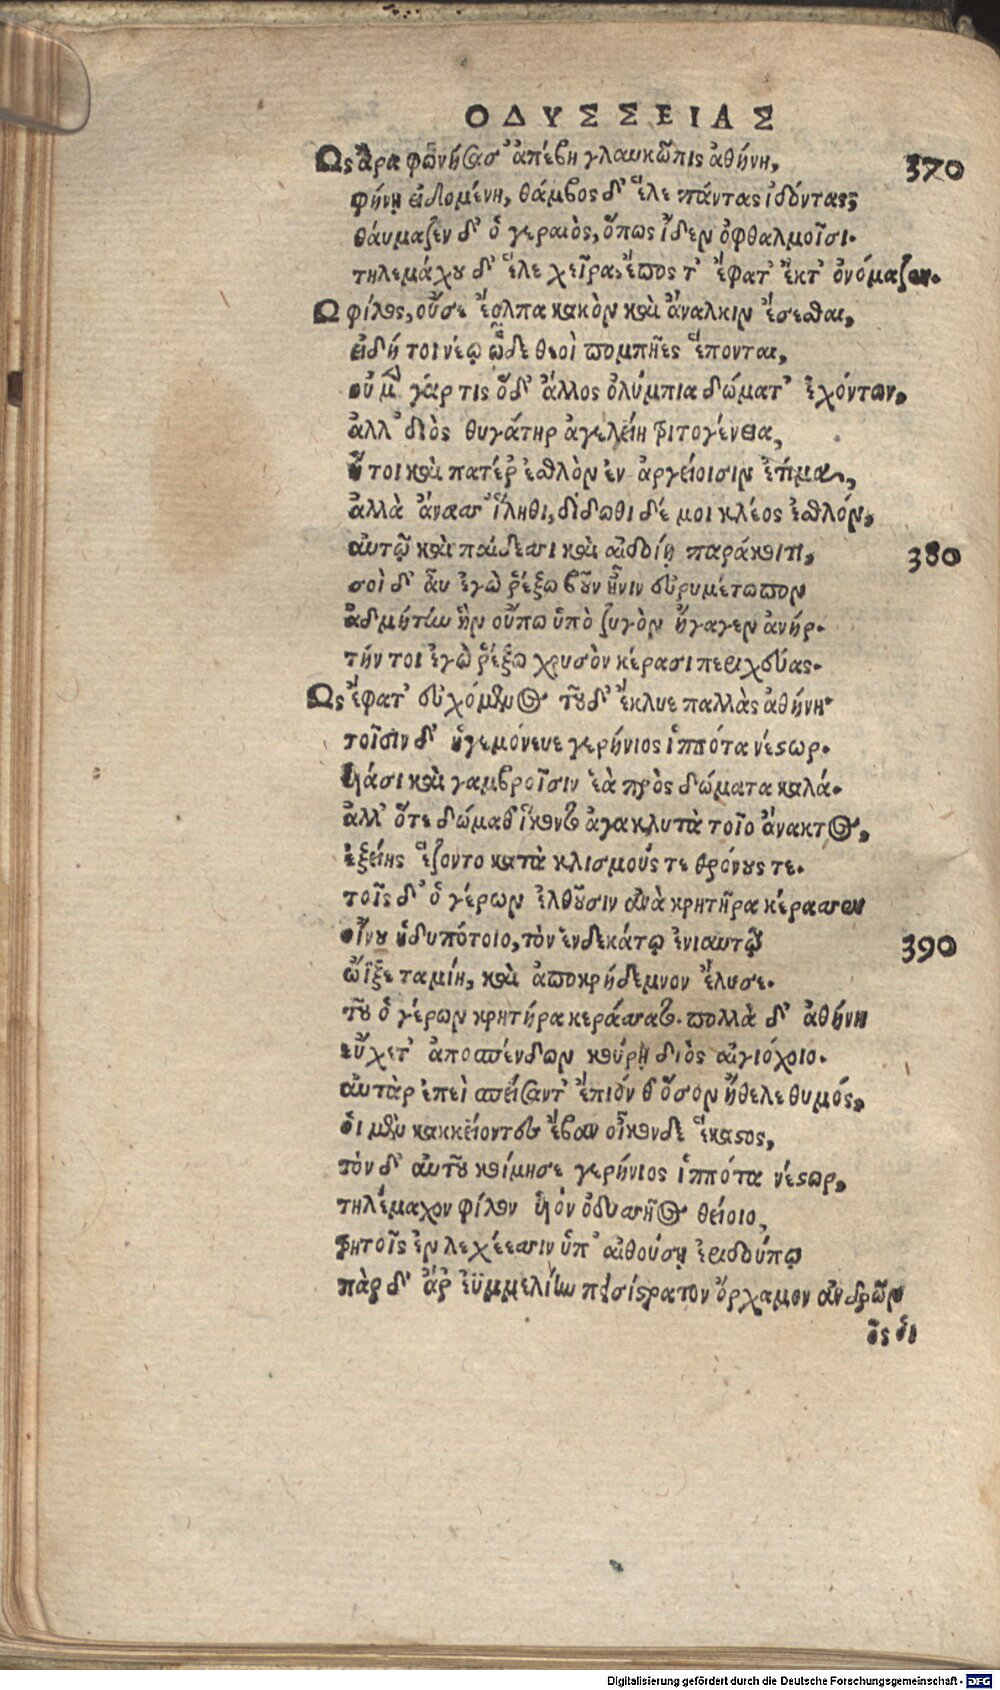 ΟΔΥΣΣΕΙΑΣ
Ως ἄρα φωνήσασ' ἀπέβη γλαυκῶπις ἀθήνη, 370
φήνῃ εἰδομένη, θάμβος δ' ἕλε πάντας ἰδόντας;
θάυμαζεν δ' ὁ γεραιὸς, ὅπως ἴδεν ὀφθαλμοῖσι.
τηλεμάχου δ' ἕλε χεῖρα, ἔπος τ' ἔφατ' ἔκτ' ὀνόμαζεν.
Ω φίλος, οὔσε ἔολπα κακὸν καὶ ἄναλκιν ἔσεσθαι,
εἰδή τοι νέῳ ὧδε θεοὶ πομπῆες ἕπονται,
οὐ μὲν γάρ τις ὅδ' ἄλλος ὀλύμπια δώματ' ἐχόντων,
ἀλλ' διὸς θυγάτηρ ἀγελείη τριτογένεια,
ἥ τοι καὶ πατέρ' ἐσθλὸν ἐν ἀργείοισιν ἐτίμα,
ἀλλὰ ἄνασσ' ἵληθι, δίδωθι δέ μοι κλέος ἐσθλόν,
αὐτῷ καὶ παίδεσσι καὶ αἰδοίῃ παράκοιτι, 380
σοὶ δ' ἂυ ἐγὼ ῥέξω βοῦν ἦνιν εὐρυμέτωπον
ἀδμήτην ἣν οὔπω ὑπὸ ζυγὸν ἤγαγεν ἀνήρ.
τήν τοι ἐγὼ ῥέξω χρυσὸν κέρασι περιχεύας.
Ως ἔφατ' εὐχόμενος τοῦ δ' ἔκλυε παλλὰς ἀθήνη·
τοῖσιν δ' ἡγεμόνευε γερήνιος ἱππότα νέστωρ.
ὑιάσι καὶ γαμβροῖσιν ἑὰ πρὸς δώματα καλά.
ἀλλ' ὅτε δώμαθ' ἵκοντο ἀγακλυτὰ τοῖο ἄνακτος,
ἑξείης ἕζοντο κατὰ κλισμούς τε θρόνους τε.
τοῖς δ' ὁ γέρων ἐλθοῦσιν ἀνὰ κρητῆρα κέρασσεν
οἴνου ἡδυπότοιο, τὸν ἑνδεκάτῳ ἐνιαυτῷ 390
ὤϊξε ταμίη, καὶ ἀποκρήδεμνον ἔλυσε.
τοῦ ὁ γέρων κρητήρα κεράσσατο. πολλὰ δ' ἀθήνη
εὔχετ' ἀποσπένδων κούρῃ διὸς αἰγιόχοιο.
αὐτὰρ ἐπεὶ σπεῖσαντ' ἔπιόν θ' ὅσον ἤθελε θυμός,
ὁι μὲν κακκείοντες ἔβαν οἶκονδε ἕκαστος,
τὸν δ' αὐτοῦ κοίμησε γερήνιος ἱππότα νέστωρ,
τηλέμαχον φίλον ὑιὸν ὀδυσσῆος θείοιο,
τρητοῖς ἐν λεχέεσσιν ὑπ' αἰθούσῃ ἐριδούπῳ
πὰρ δ' ἄρ' ἐϋμμελίην πεισίστρατον ὄρχαμον ἀνδρῶν
ὅς ὁι
Digitalisierung gefördert durch die Deutsche Forschungsgemeinschaft - DFG